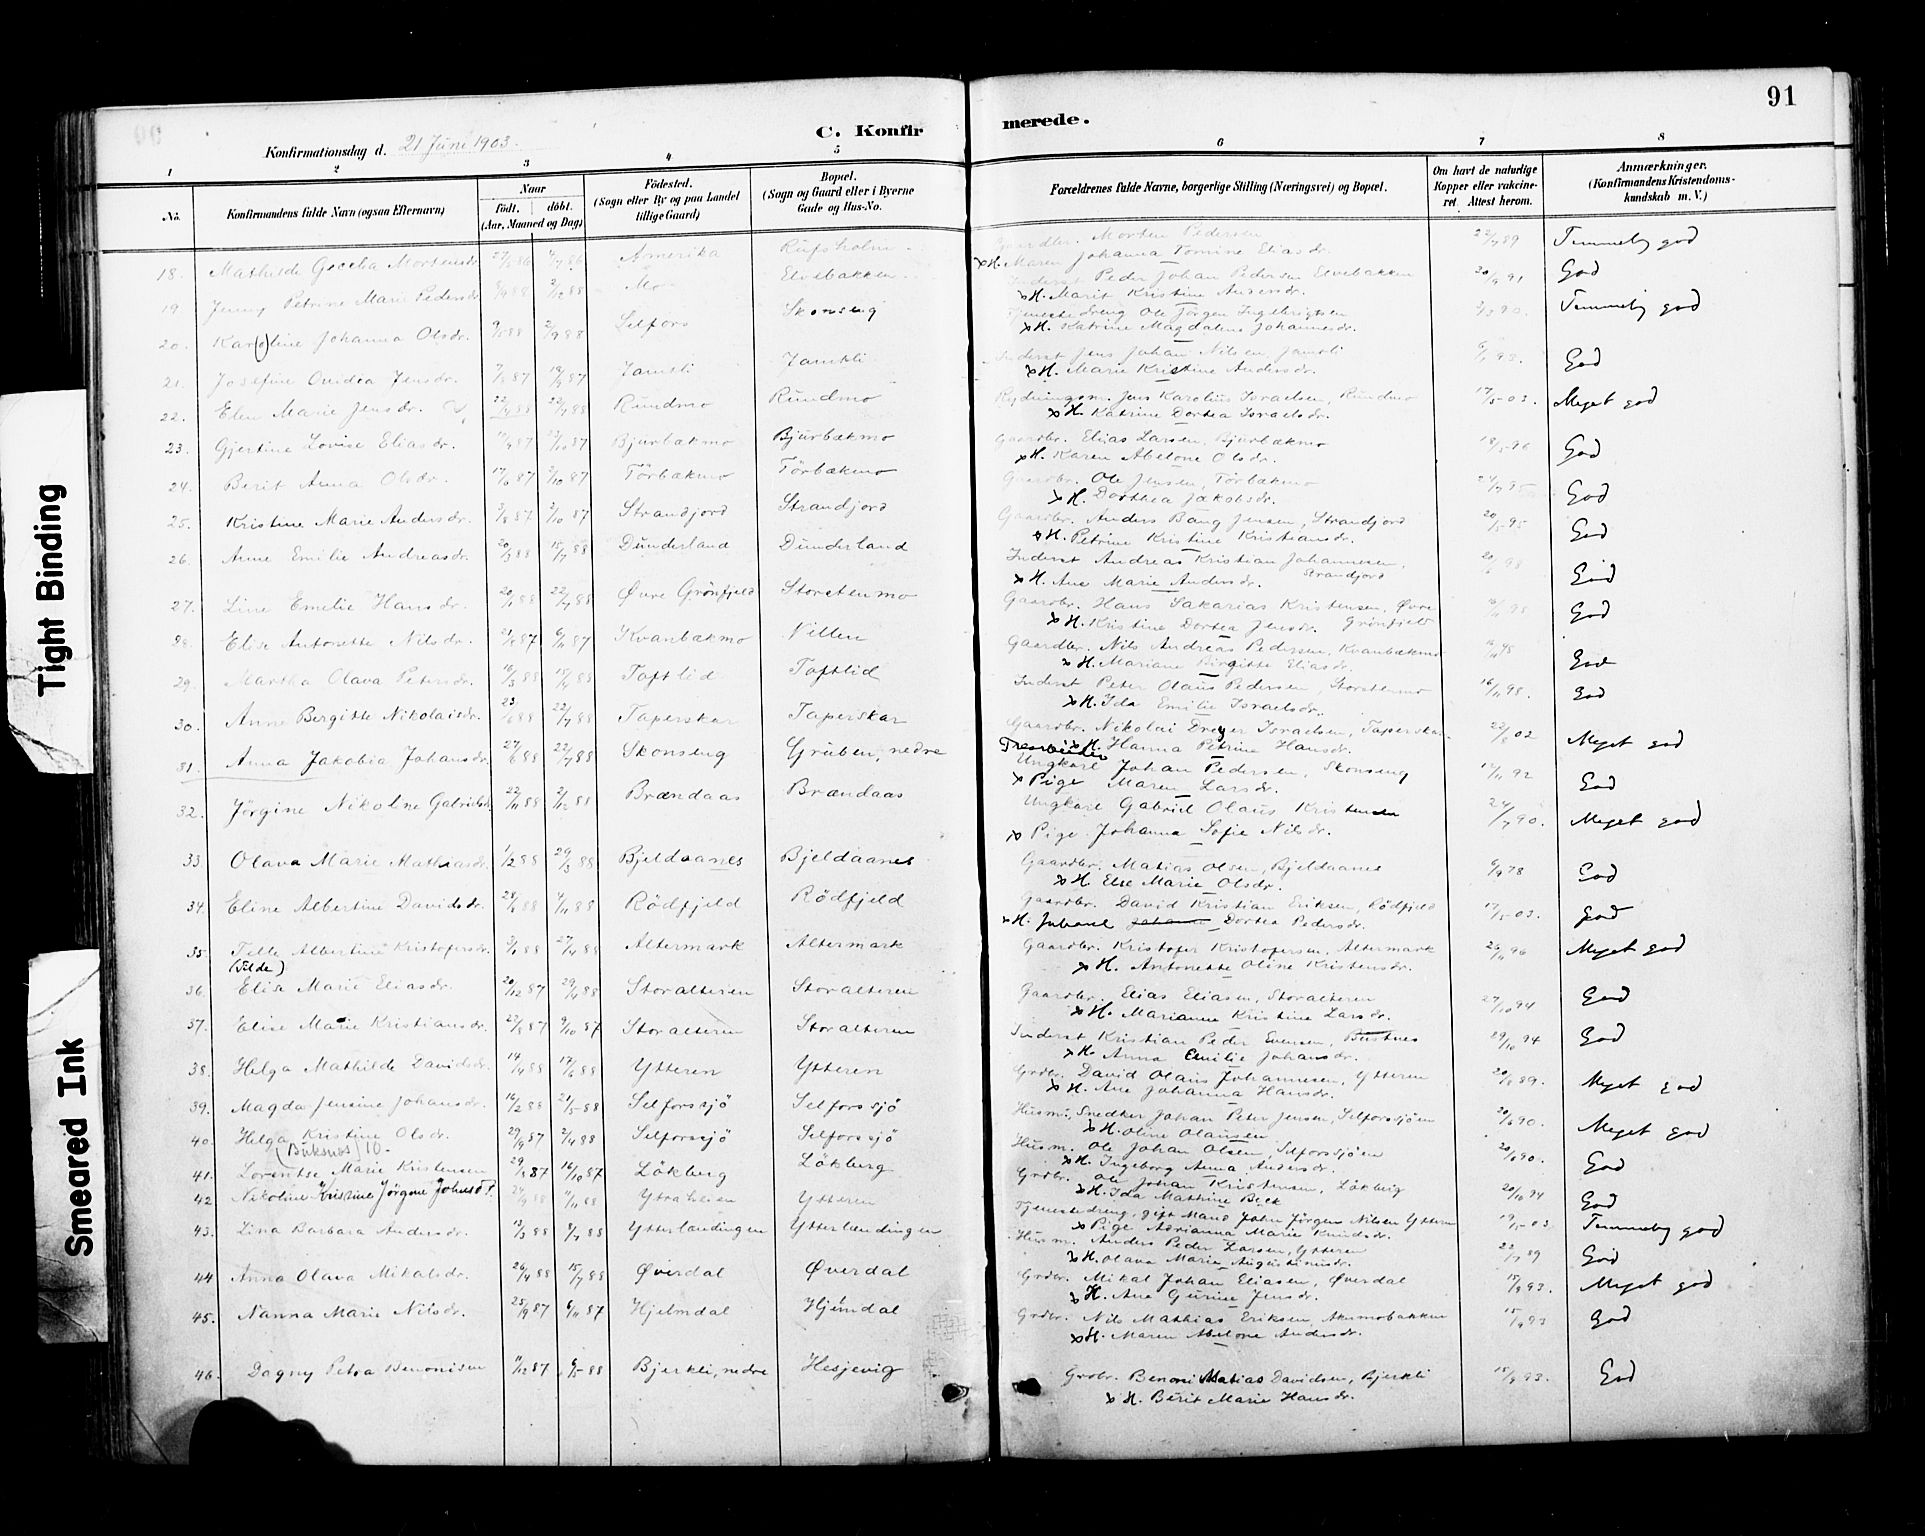 91
C. Konfirmerede.
Konfirmationsdag d. 21 Juni 1903.
1 2 3 4 5 6 7 8
No. Konfirmandens fulde Navn (ogsaa Efternavn) Naar født. døbt. (Aar, Maaned og Dag) Fødested. (Sogn eller By og paa Landet tillige Gaard) Bopæl. (Sogn og Gaard eller i Byerne Gade og Hus-No. Forældrenes fulde Navne, borgerlige Stilling (Næringsvei) og Bopæl. Om havt de naturlige Kopper eller vakcineret. Attest herom. Anmærkninger. (Konfirmandens Kristendomskundskab m. V.)
18. Mathilde Mortensdr. Amerika Morten Pedersen 22/7 89 Temmelig god
H. Maren Johanna Tomine Eliasdr.
19. Jenny Petrine Marie Pedersdr. Mo Elvebakken Inderst Peder Johan Pedersen Elvebakken 20/9 91 God
H. Marit Kristine Andersdr.
20. Kar(o)line Johanna Olsdr. 2/9 88 Selfors Skonseng Tjenestedreng Ole Jörgen Ingebrigtsen Temmelig god
H. Katrine Magdalene Johannesdr.
21. Josefine Ovidia Jensdr. Jamtli Jamtli Inderst Jens Johan Nilsen, Jamtli God
H. Marie Kristine Andersdr.
22. Elen Marie Jensdr. Rundmo Rundmo Rydningsm. Jens Karolius Israelsen, Rundmo 17/5 03. Meget god
H. Katrine Dortea Israelsdr.
23. Gjertine Lovise Eliasdr. Bjurbækmo Bjurbækmo Gaardbr. Elias Larsen, Bjurbækmo 18/5 96 God
H. Karen Abelone Olsdr.
24. Berit Anna Olsdr. 17/6 87 Törbækmo Törbækmo Gaardbr. Ole Jensen, Törbækmo God
H. Dorthea Jakobsdr.
25. Kristine Marie Andersdr. 3/8 87 2/10 87 Strandjord Strandjord Gaardbr. Anders Bang Jensen, Strandjord 20/5 95 God
H. Petrine Kristine Kristiansdr.
26. Anne Emilie Andreasdr. 20/3 88 15/7 88 Dunderland Dunderland Inderst Andreas Kristian Johannesen, Strandjord God
H. Ane Marie Andersdr.
27. Line Emelie Hansdr. 20/1 88 22/7 88 Øvre Grönfjeld Storstenmo Gaardbr. Hans Sakarias Kristensen, Øvre Grönfjeld God
H. Kristine Dortea Jensdr.
28. Elise Antonette Nilsdr. Kvanbækmo Gaardbr. Nils Andreas Pedersen, Kvanbækmo God
H. Mariane Birgitte Eliasdr.
29. Martha Olava Petersdr. 16/3 88 Toftlid Toftlid Inderst Peter Olaus Pedersen, Storstenmo 16/11 98. God
H. Ida Emilie Israelsdr.
30. Anne Bergitte Nikolaisdr. 23/6 88 22/7 88 Taperskar Taperskar Gaardbr. Nikolai Dreyer Israelsen, Taperskar 22/8 02 Meget god
H. Hanna Petrine Hansdr.
31. Anna Jakobia Johansdr. 27/6 88 22/7 88 Skonseng Gruben, nedre Ungkarl Johan Pedersen, Skonseng 12/11 92 God
Pige Maren Larsdr.
32. Jörgine Nikoline Gabrielsdr. 22/11 88 2/12 88 Brændaas Brændaas Ungkarl Gabriel Olaus Kristensen 24/7 90. Meget god
Pige Johanna Sofie Nilsdr.
33 Olava Marie Mathiasdr. 1/2 88 29/3 88 Bjeldaanes Bjeldaanes Gaardbr. Matias Olsen, Bjeldaanes 6/9 78 God
H. Else Marie Olsdr.
34. Eline Albertine Davidsdr. Rödfjeld Rödfjeld Gaardbr. David Kristian Eriksen, Rödfjeld 17/5 03. God
H. Johanna Dortea Pedersdr.
35. Telle Albertine Kristofersdr. (Tilde) Altermark Altermark Gaardbr. Kristofer Kristofersen, Altermark 26/11 96 Meget god
H. Antonette Oline Kristensdr.
36. Elisa Marie Eliasdr. 20/12 87 29/4 88 Storalteren Storalteren Gaardbr. Elias Eliasen, Storalteren 27/10 94 God
H. Marianne Kristine Larsdr.
37. Elise Marie Kristiansdr. 23/8 87 9/10 87 Storalteren Storalteren Inderst Kristian Peder Evensen, Bustnes 29/10 94 God
H. Anna Emilie Johansdr.
38. Helga Mathilde Davidsdr. 14/4 88 17/6 88 Ytteren Ytteren Grdbr. David Olaus Johannesen, Ytteren 20/8 89. Meget god
H. Ane Johanna Hansdr.
39. Magda Jensine Johansdr. 16/2 88 21/5 88 Selforssjö Selforssjö Husm., Snedker Johan Peter Jensen, Selforssjöen 20/6 90. Meget god
H. Oline Olausen
40. Helga Kristine Olsdr. (Buksnes) 10. 29/9 87 2/4 88 Selforssjö Selforssjö Husm. Ole Johan Olsen, Selforssjöen 20/6 90. God
H. Ingeborg Anna Andersdr.
41. Lorentse Marie Kristensen 29/8 87 16/10 87 Lökberg Lökberg Grdbr. Ole Johan Kristensen, Lökberg 20/10 94 God
H. Ida Mathine Beck
42 Nikoline Kristine Jörgine Johnsdr. Ytteren Tjenestedreng, gift Mand John Jörgen Nilsen Ytteren 19/5 03. Temmelig god
Pige Adrianna Marie Knudsdr.
43. Lina Barbara Andersdr. 13/3 88 8/7 88 Ytterlændingen Ytterlændingen Husm. Anders Peder Larsen, Ytteren 22/7 89 God
H. Olava Marie Augustinusdr.
44 Anna Olava Mikalsdr. 26/4 88 15/7 88 Øverdal Øverdal Grdbr. Mikal Johan Eliasen, Øverdal 17/9 93. Meget god
H. Ane Gurine Jensdr.
45. Nanna Marie Nilsdr. 25/9 87 6/11 87 Hjelmdal Hjemdal Grdbr. Nils Mathias Eriksen, Akermobakken 15/9 93 God
H. Maren Abelone Andersdr.
46. Dagny Petra Benonisen 11/12 87 6/5 88 Bjerkli, nedre Hesjevig Grdbr. Benoni Matias Davidsen, Bjerkli 15/9 93. God
H. Berit Marie Hansdr.
Tight Binding
Smeared Ink